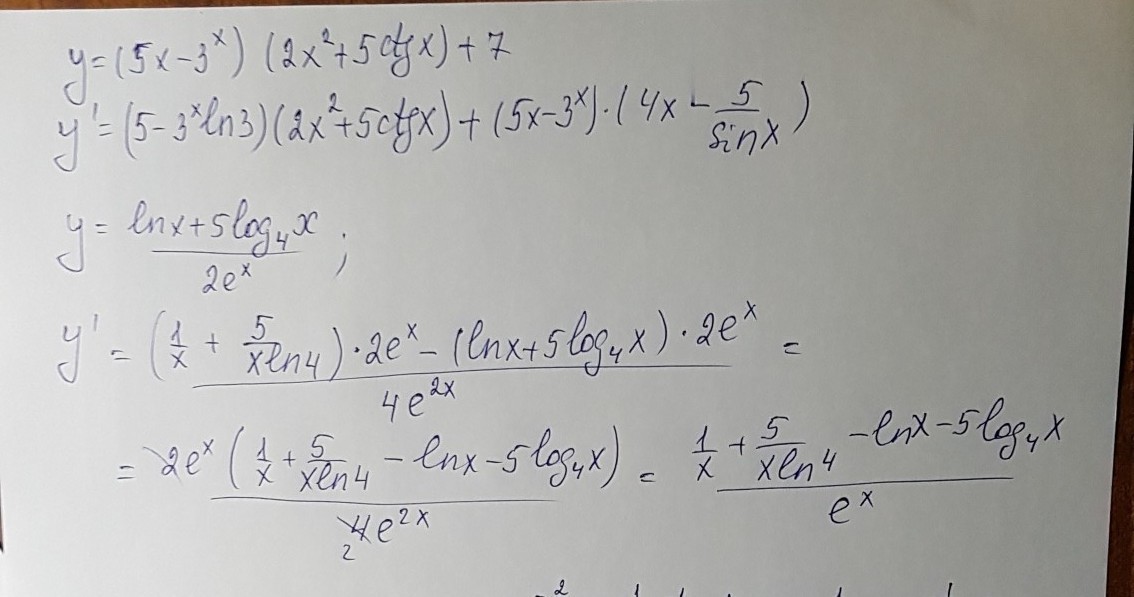 y=(5x-3^x) (2x²+5ctgx)+7
y'=(5-3^x ln3)(2x²+5ctgx)+(5x-3^x)·(4x - 5/sinx)
y= (lnx+5log₄x)/(2e^x) ;
y' = ((1/x + 5/(xln4))·2e^x - (lnx+5log₄x)·2e^x)/(4e^(2x)) =
= (2e^x (1/x + 5/(xln4) - lnx-5log₄x))/(4e^(2x)) 2 = (1/x + 5/(xln4) -lnx-5log₄x)/(e^x)